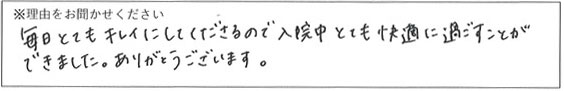 ※理由をお聞かせください
毎日とてもキレイにしてくださるので入院中とても快適に過ごすことが
できました。ありがとうございます。